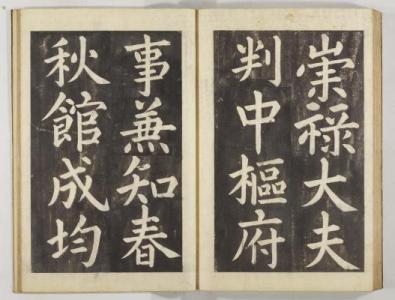 崇祿大夫
判中樞府
事兼知春
秋館成均